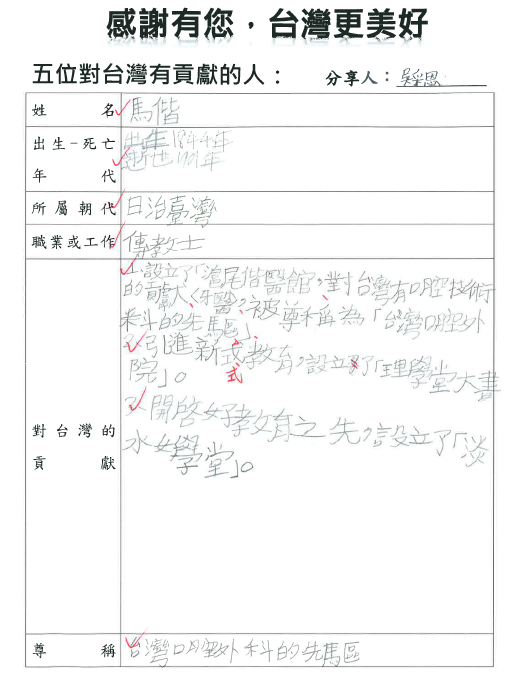 感謝有您，台灣更美好
五位對台灣有貢獻的人： 分享人：吳采恩
姓名 馬偕
出生-死亡 出生1844年
年代 逝世1901年
所屬朝代 日治臺灣
職業或工作 傳教士
1.設立了「滬尾偕醫館，對台灣有口腔技術
的貢獻〈牙醫〉，被尊稱為「台灣口腔外
科的先馬區」、
2.引進新式教育，設立了「理學堂大書
式
院」。
對台灣的 3.開啟女子教育之先，設立了「淡
貢獻 水女學堂」。
尊稱 台灣口腔外科的先馬區